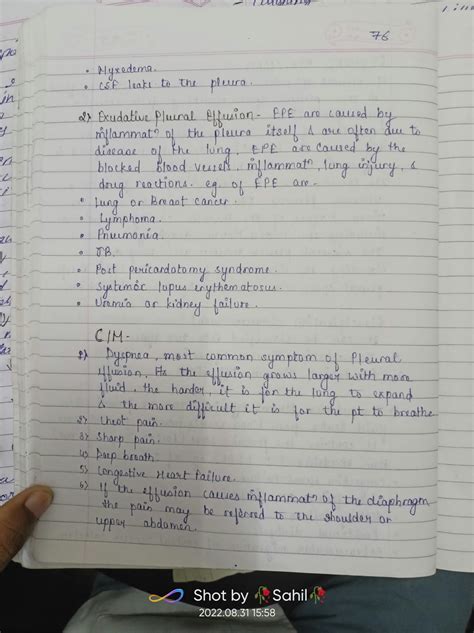 76
• Myxedema.
• CSF leaks to the pleura.
2) Exudative Pleural Effusion - EPE are caused by
inflammatn of the pleura itself & are often due to
disease of the lung, EPE are caused by the
blocked blood vessels. inflammatn, lung injury, &
drug reactions. eg. of EPE are-
• Lung or Breast cancer.
• Lymphoma.
• Pneumonia.
• TB.
• Post pericardotomy syndrome.
• Systemic lupus erythematosus.
• Uremia or kidney failure.
C/M-
1) Dyspnea, most common symptom of Pleural
effusion, As the effusion grows larger with more
fluid, the harder, it is for the lung to expand
& the more difficult it is for the pt to breathe
2) Chest pain.
3) Sharp pain.
4) Deep breath.
5) Congestive Heart Failure.
6) If the effusion causes inflammatn of the diaphragm
the pain may be referred to the shoulder or
upper abdomen.
Shot by Sahil
2022.08.31 15:58